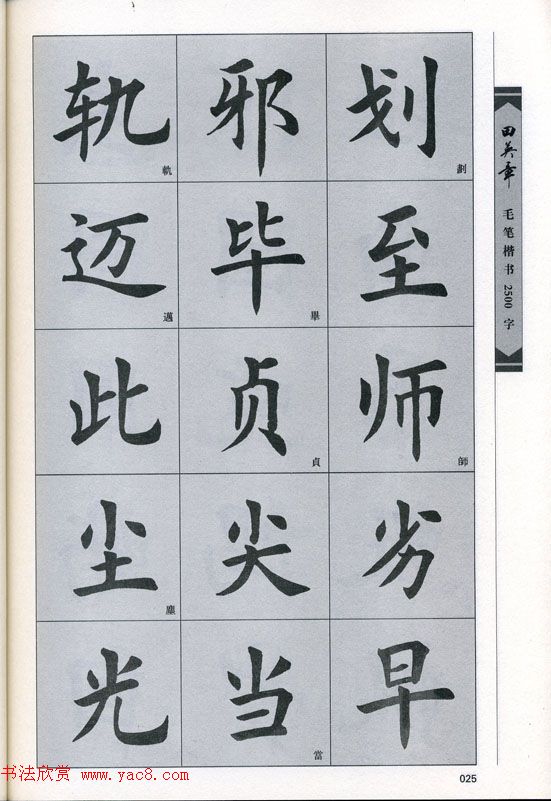 轨 軌 邪 划 劃
迈 邁 毕 畢 至
此 贞 貞 师 師
尘 塵 尖 劣
光 当 當 早
田英章
毛笔楷书2500字
书法欣赏 www.yac8.com
025